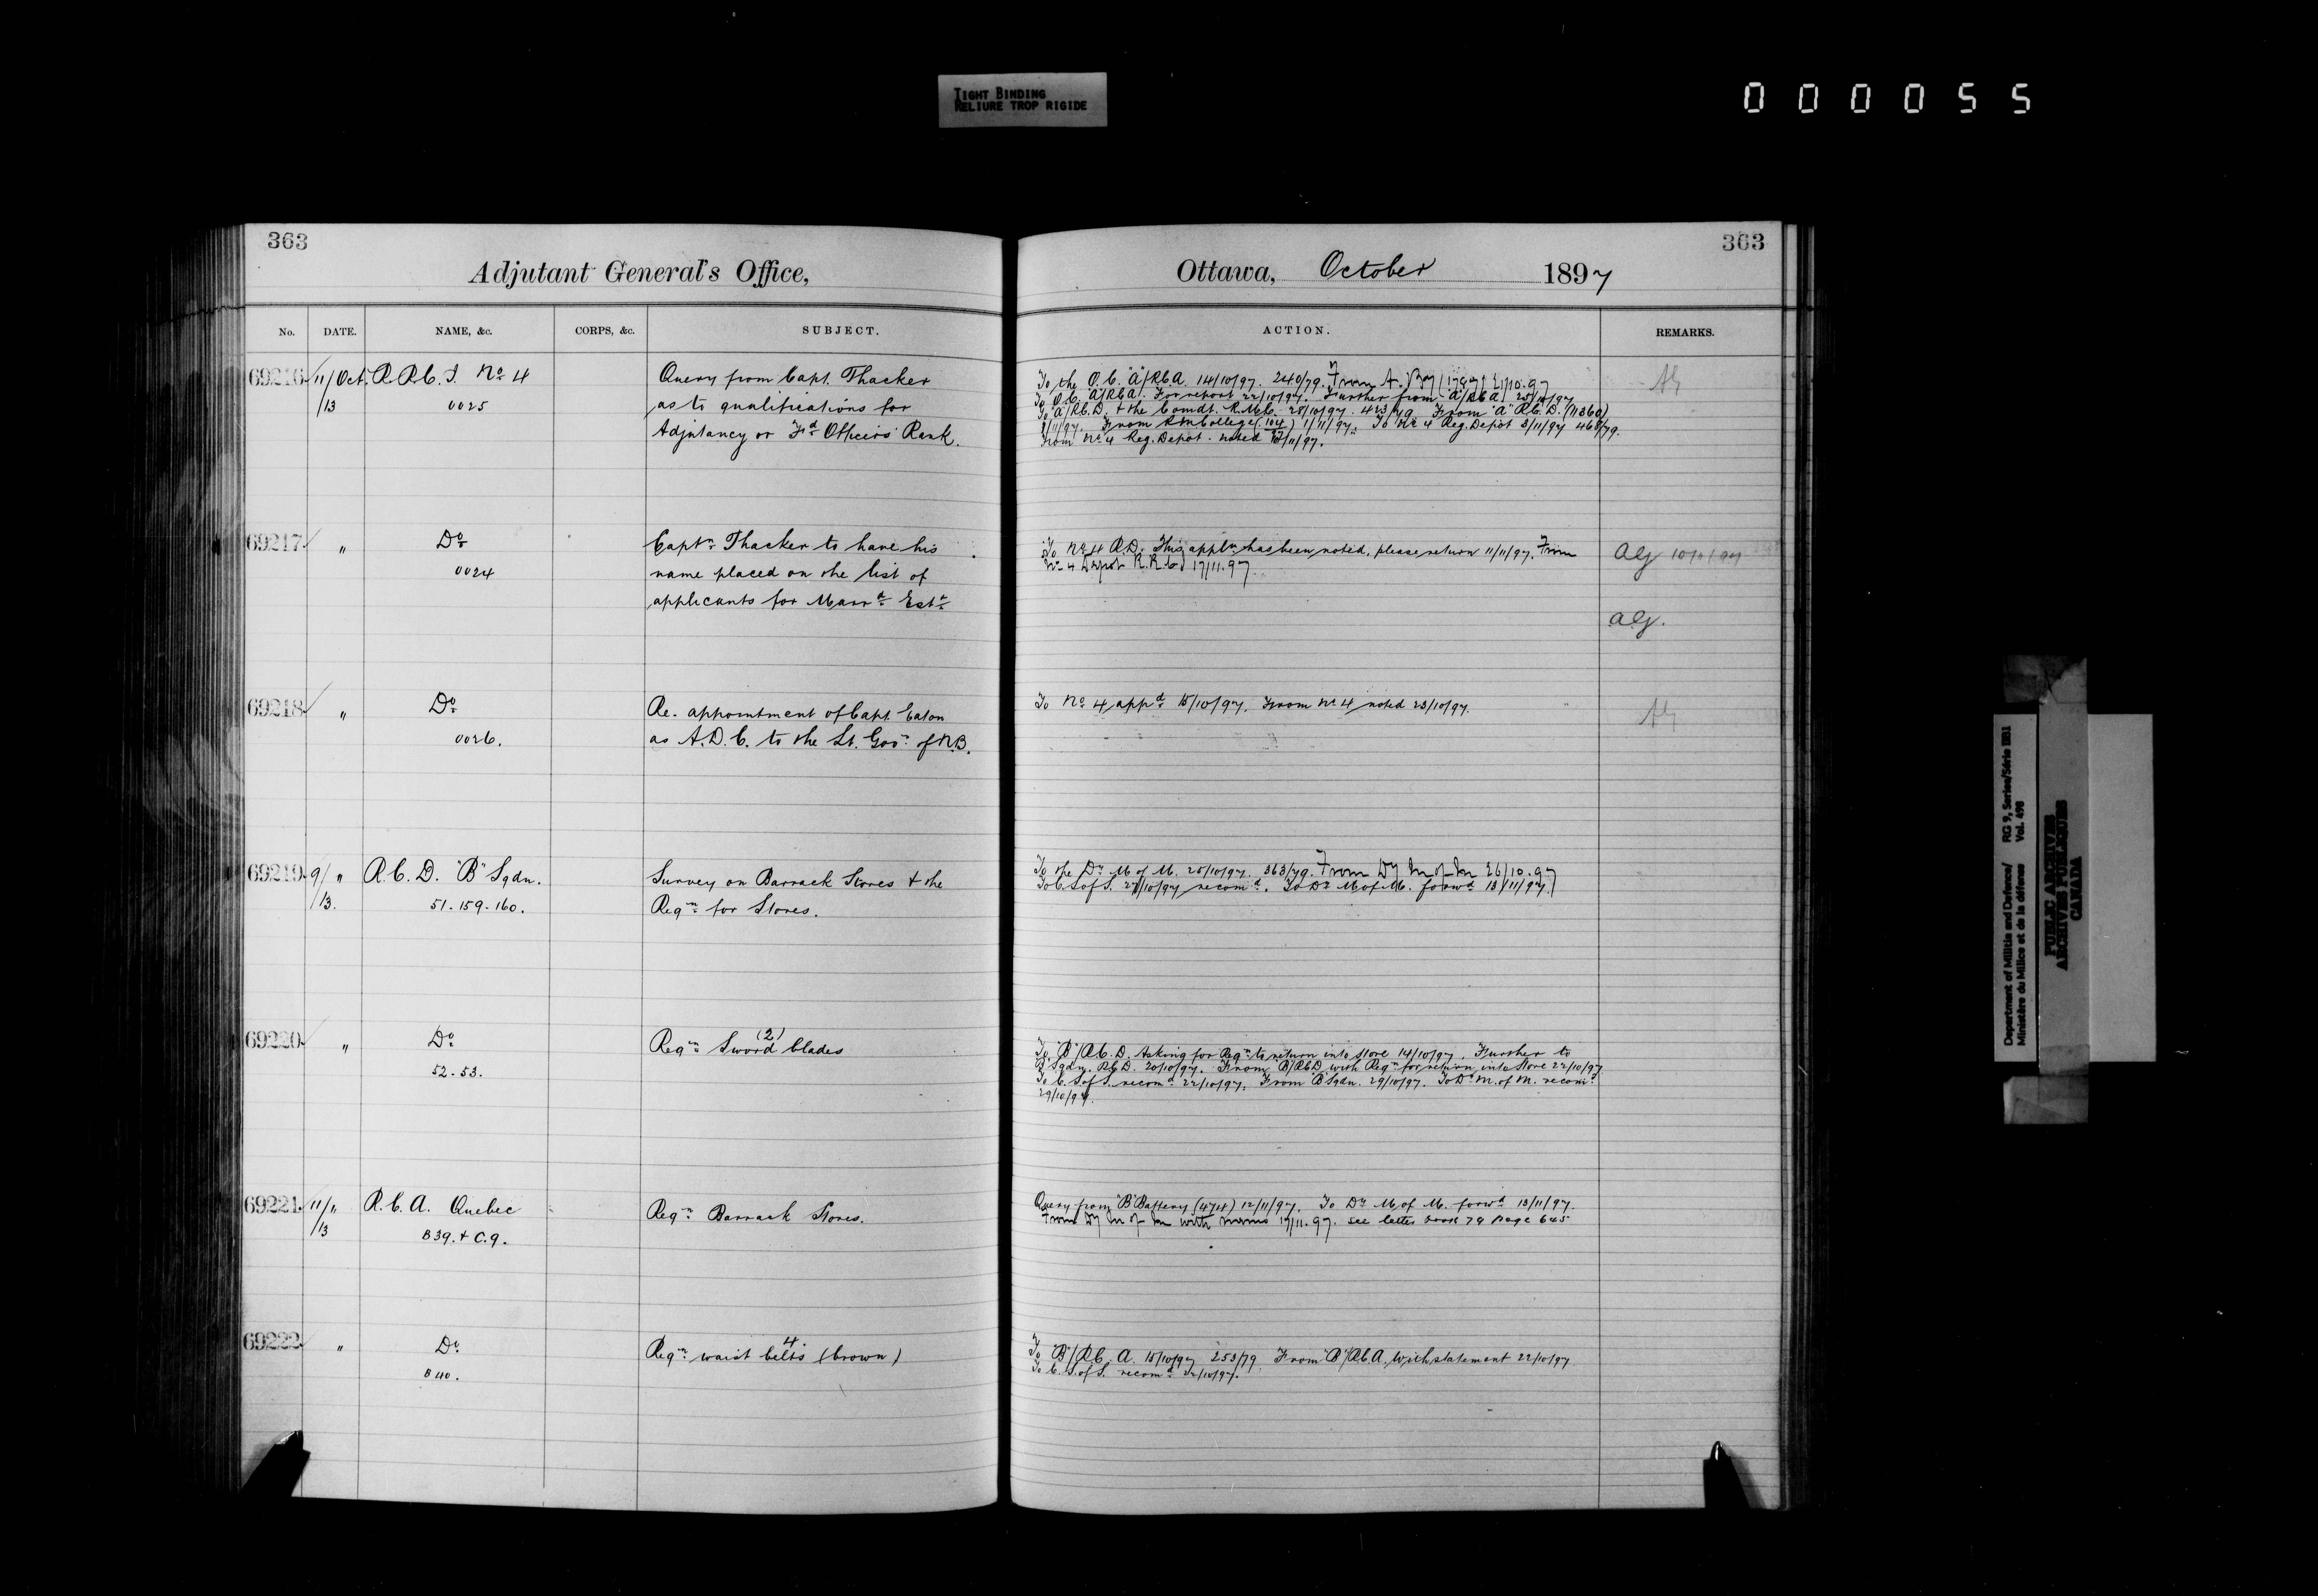 TIGHT BINDING
RELIURE TROP RIGIDE
000055
363
Adjutant General's Office,
No. DATE. NAME, &c. CORPS, &c. SUBJECT.
69216 11/Oct. R.R.C.I. No 4 Query from Capt. Thacker
/13 0025 as to qualifications for
Adjutancy or Fd Officers' Rank.
69217 " Do Captn Thacker to have his
0024 name placed on the list of
applicants for Marrd Estt
69218 " Do Re. appointment of Capt. Eaton
0026. as A.D.C. to the Lt. Govr of N.B.
69219 9/ " R.C.D. "B" Sqdn. Survey on Barrack Stores & the
/13. 51.159.160. Reqn for Stores.
69220 " Do Reqn Sword (2) blades
52.53.
69221 11/" R.C.A. Quebec Reqn Barrack Stores.
/13 B39. & C.9.
69222 " Do Reqn 4. waist belts (brown)
B40.
363
Ottawa, October 1897
ACTION. REMARKS.
To the O.C. "A"/R.C.A. 14/10/97. 240/79. From A. 21/10.97
To O.C. "A"/R.C.A. For report 22/10/97. Further from "A"/R.C.A. 25/10/97
To "A"/R.C.D. & the Comdt. R.M.C. 28/10/97. 423/79. From "A" R.C.D. (11360)
2/11/97. From RM College (104) 1/11/97. To No 4 Reg. Depot 3/11/97 468/79.
From No 4 Reg. Depot. noted /11/97.
To No 4 R.D. This appln has been noted, please return 11/11/97. From
No 4 Depot R.R.C.I 17/11.97.
To No 4 appd 15/10/97. From No 4 noted 23/10/97.
To the Dy M of M. 25/10/97. 363/79. From Dy M of M 26/10.97
To C.S of S. 27/10/97 recomd. To Dy M of M. forwd 13/11/97.
To "B"/R.C.D. Asking for Reqn to return into store 14/10/97. Further to
"B" Sqdn. R.C.D. 20/10/97. From "B"/R.C.D. with Reqn for return into Store 22/10/97
To C.S of S. recomd 22/10/97. From "B" Sqdn. 29/10/97. To Dy M. of M. recomd
29/10/97.
Query from "B" Battery (474) 12/11/97. To Dy M of M. forwd 13/11/97.
From Dy M of M with memo 17/11.97. See letter book 79 page 645
To "B"/R.C.A. 15/10/97 253/79. From "B"/R.C.A. with statement 22/10/97
To C.S. of S. recomd 22/10/97.
Department of Militia and Defence/ RG 9, Series/Série IIB1
Ministère du Milice et de la défense Vol. 498
PUBLIC ARCHIVES
ARCHIVES PUBLIQUES
CANADA